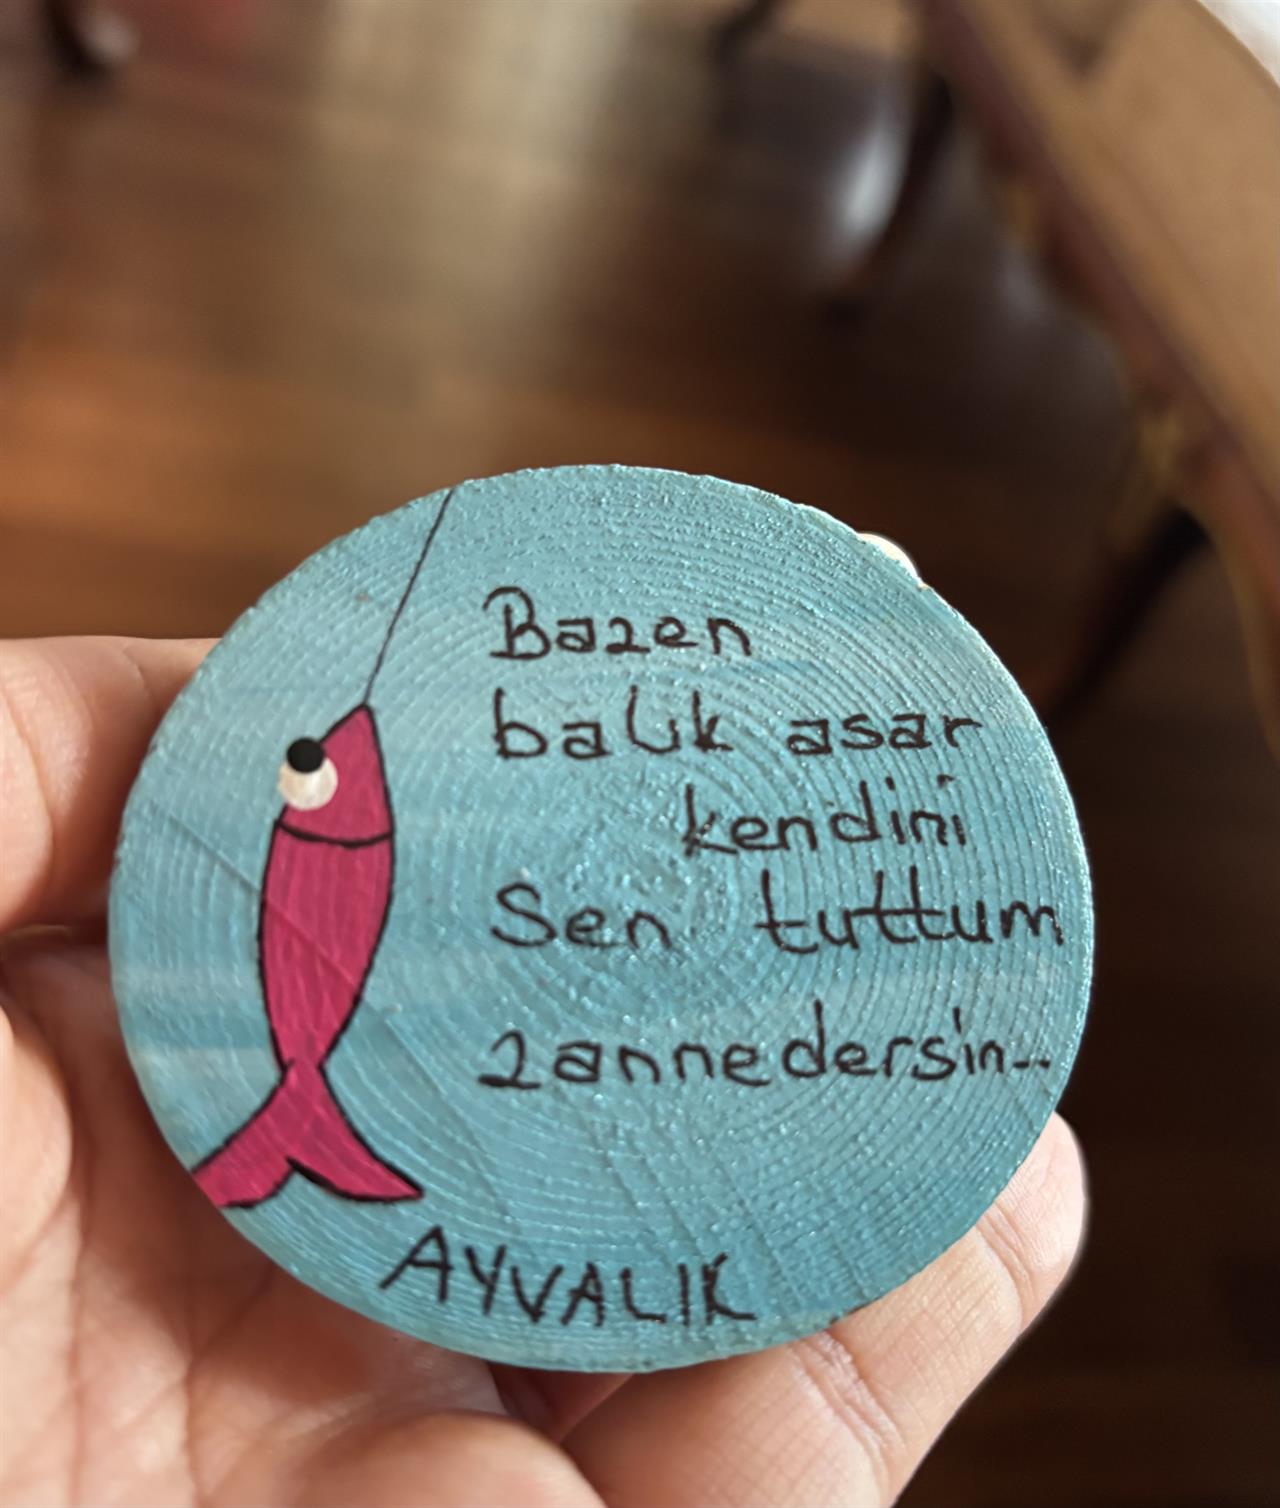 Bazen
balık asar
kendini
Sen tuttum
zannedersin..
AYVALIK